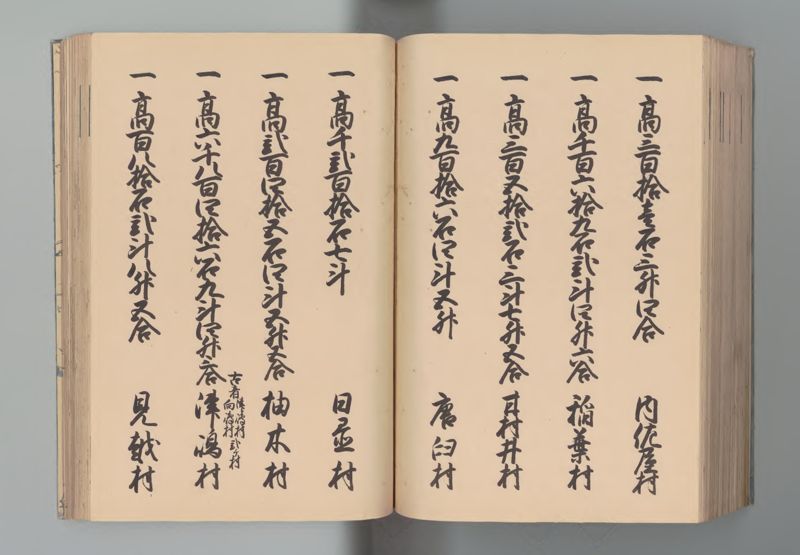 一 高三百拾壱石三升四合 内佐屋村
一 高千百六拾九石弐斗四升六合 稲葉村
一 高三百五拾弐石三斗七升五合 村井村
一 高九百拾六石四斗五升 唐臼村
一 高千弐百拾石七斗 日置村
一 高弐百四拾五石四斗五升五合 柚木村
古者津嶋村向嶋村弐ヶ村
一 高六千八百四拾六石九斗四升六合 津嶋村
一 高百八拾石弐斗八升五合 見越村